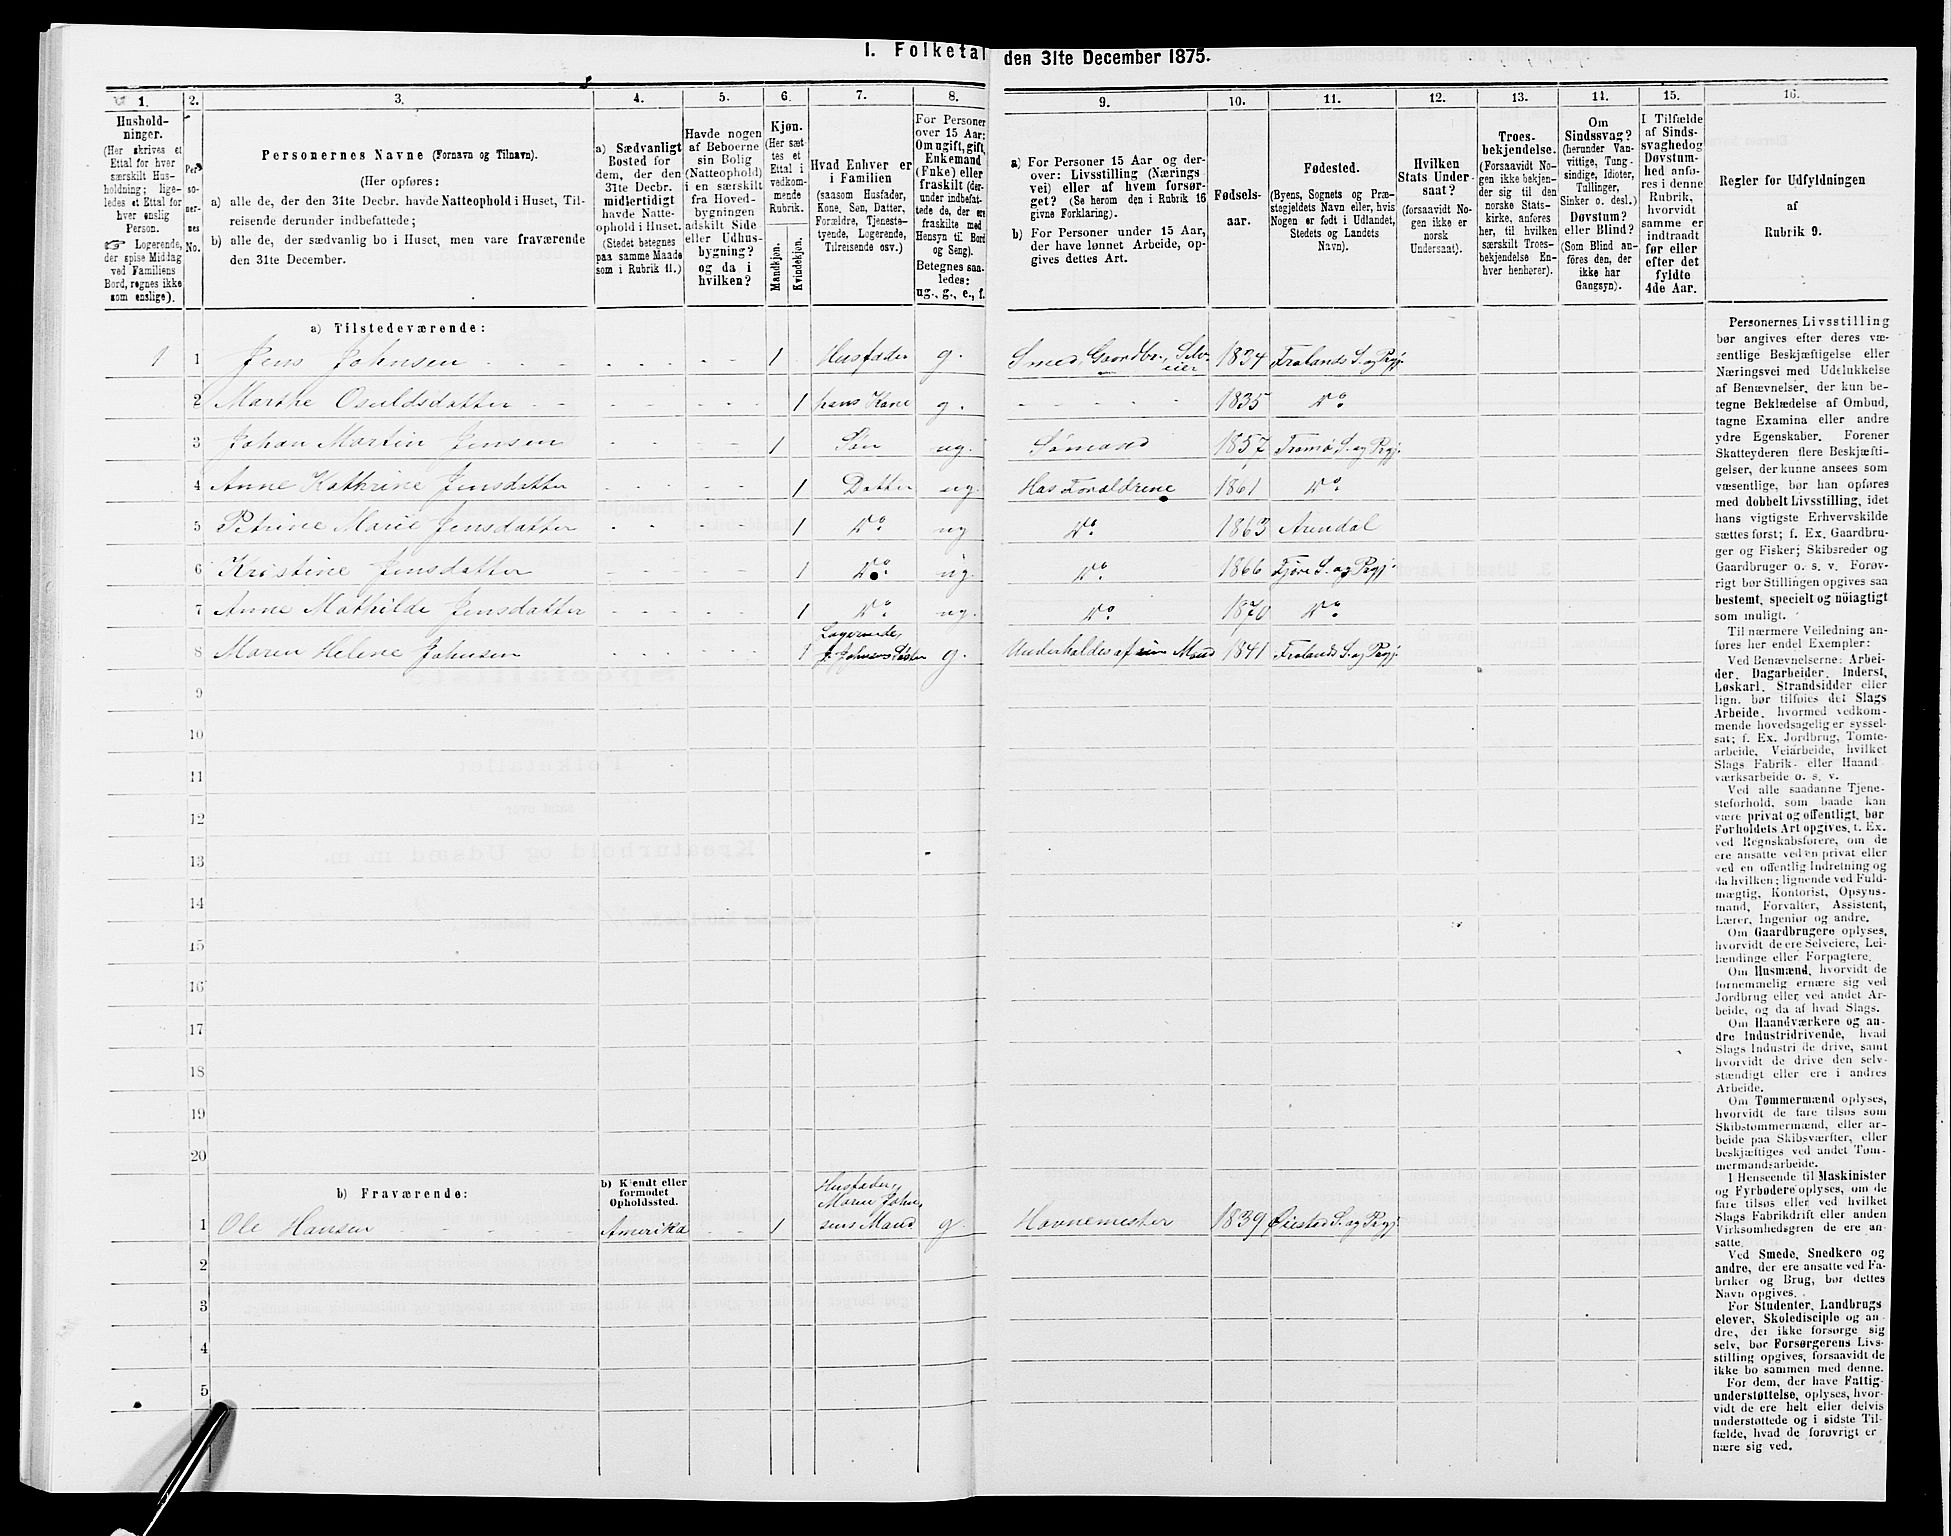 I. Folketal den 31te December 1875.
1. 2. 3. 4. 5. 6. 7. 8. 9. 10. 11. 12. 13. 14. 15. 16.
Hushold-
ninger.
(Her skrives et
Ettal for hver
særskilt Hus-
holdning; lige-
ledes et Ettal for
hver enslig
Person.
☞ Logerende,
der spise Middag
ved Familiens
Bord, regnes ikke
som enslige).
Per-
so-
ner-
nes
No.
Personernes Navne (Fornavn og Tilnavn).
(Her opføres:
a) alle de, der den 31te Decbr. havde Natteophold i Huset, Til-
reisende derunder indbefattede;
b) alle de, der sædvanlig bo i Huset, men vare fraværende
den 31te December.
a) Sædvanligt
Bosted for
dem, der den
31te Decbr.
midlertidigt
havde Natte-
ophold i Huset.
(Stedet betegnes
paa samme Maade
som i Rubrik 11.)
Havde nogen
af Beboerne
sin Bolig
(Natteophold)
i en særskilt
fra Hoved-
bygningen
adskilt Side
eller Udhus-
bygning?
og da i
hvilken?
Kjøn.
(Her sæt-
tes et
Ettal i
vedkom-
mende
Rubrik.
Mandkjøn.
Kvindekjøn.
Hvad Enhver er
i Familien
(saasom Husfader,
Kone, Søn, Datter,
Forældre, Tjeneste-
tyende, Logerende,
Tilreisende osv.)
For Personer
over 15 Aar:
Om ugift, gift,
Enkemand
(Enke) eller
fraskilt (der-
under indbefat-
tede de, der ere
fraskilte med
Hensyn til Bord
og Seng).
Betegnes saa-
ledes:
ug., g., e., f.
a) For Personer 15 Aar og der-
over: Livsstilling (Nærings
vei) eller af hvem forsør-
get? (Se herom den i Rubrik 16
givne Forklaring).
b) For Personer under 15 Aar,
der have lønnet Arbeide, op-
gives dettes Art.
Fødsels-
aar.
Fødested.
(Byens, Sognets og Præ-
stegjeldets Navn eller, hvis
Nogen er født i Udlandet,
Stedets og Landets
Navn).
Hvilken
Stats Under
saat?
(forsaavidt No-
gen ikke er
norsk
Undersaat).
Troes-
bekjendelse.
(Forsaavidt No-
gen ikke bekjen-
der sig til den
norske Stats-
kirke, anføres
her, til hvilken
særskilt Troes-
bekjendelse En-
hver henhører).
Om
Sindssvag?
(herunder Van-
vittige, Tung-
sindige, Idioter,
Tullinger,
Sinker o. desl.)
Døvstum?
eller Blind?
(Som Blind an-
föres den, der
ikke har
Gangsyn).
I Tilfælde
af Sinds-
svaghed og
Døvstum-
hed anfø-
res i denne
Rubrik,
hvorvidt
samme er
indtraadt
før eller
efter det
fyldte
4de Aar.
Regler for Udfyldningen
af
Rubrik 9.
a) Tilstedeværende:
1 1 Jens Johnsen 1 Husfader g. Smed, Gaardbr., Selveier 1834 Frolands S. og Prgj.
2 Marthe Osuldsdatter 1 hans Kone g. 1835 do
3 Johan Martin Jensen 1 Søn ug. Sømand 1857 Tromø S. og Prgj.
4 Anne Kathrine Jensdatter 1 Datter ug. Hos Forældrene 1861 do
5 Petrine Marie Jensdatter 1 do ug do 1863 Arendal
6 Kristine Jensdatter 1 do ug. do 1866 Fjøre S. og Prgj.
7 Anne Mathilde Jensdatter 1 do ug. do 1870 do
8 Maren Helene Johnsen 1 Logerende, J. Johnsens Søster g. Underholdes af sin Mand 1841 Frolands S. og Prgj.
9
10
11
12
13
14
15
16
17
18
19
20
b) Fraværende:
b) Kjendt eller
formodet
Opholdssted.
1 Ole Hansen Amerika 1 Husfader, Maren Johnsens Mand g. Havnemester 1839 Øiestad S. og Prgj.
2
3
4
5
Personernes Livsstilling
bør angives efter deres væ-
sentlige Beskjæftigelse eller
Næringsvei med Udelukkelse
af Benævnelser, der kun be-
tegne Beklædelse af Ombud,
tagne Examina eller andre
ydre Egenskaber. Forener
Skatteyderen flere Beskjæfti-
gelser, der kunne ansees som
væsentlige, bør han opføres
med dobbelt Livsstilling, idet
hans vigtigste Erhvervskilde
sættes først; f. Ex. Gaardbru-
ger og Fisker; Skibsreder og
Gaardbruger o. s. v. Forøv-
rigt bør Stillingen opgives saa
bestemt, specielt og nöiagtigt
som muligt.
Til nærmere Veiledning an-
føres her endel Exempler:
Ved Benævnelserne: Arbei-
der, Dagarbeider, Inderst,
Løskarl, Strandsidder eller
lign. bør tilføies det Slags
Arbeide, hvormed vedkom-
mende hovedsagelig er syssel-
sat; f. Ex. Jordbrug, Tomte-
arbeide, Veiarbeide, hvilket
Slags Fabrik- eller Haand
værksarbeide o. s. v.
Ved alle saadanne Tjene-
steforhold, som baade kan
være privat og offentligt, bør
Forholdets Art opgives, t. Ex.
ved Regnskabsførere, om de
ere ansatte ved en privat eller
ved en offentlig Indretning og
da hvilken; lignende ved Fuld-
mægtig, Kontorist, Opsyns-
mand, Forvalter, Assistent,
Lærer, Ingeniør og andre.
Om Gaardbrugere oplyses,
hvorvidt de ere Selveiere, Lei-
lændinge eller Forpagtere.
Om Husmænd, hvorvidt de
fornemmelig ernære sig ved
Jordbrug eller ved andet Ar-
beide, og da af hvad Slags.
Om Haandværkere og an-
dre Industridrivende, hvad
Slags Industri de drive, samt
hvorvidt de drive den selv-
stændigt eller ere i andres
Arbeide.
Om Tømmermænd oplyses,
hvorvidt de fare tilsøs som
Skibstømmermænd, eller ar-
beide paa Skibsværfter, eller
beskjæftiges ved andet Tøm-
mermandsarbeide.
I Henseende til Maskinister
og Fyrbødere oplyses, om de
fare tilsøs eller ved hvilket
Slags Fabrikdrift eller anden
Virksomhedsgren de ere an-
satte.
Ved Smede, Snedkere og
andre, der ere ansatte ved Fa-
briker og Brug, bør dettes
Navn opgives.
For Studenter, Landbrugs
elever, Skoledisciple og an-
dre, der ikke forsørge sig
selv, bør Forsørgerens Livs-
stilling opgives, forsaavidt de
ikke bo sammen med denne.
For dem, der have Fattig-
understøttelse, oplyses, hvor-
vidt de ere helt eller delvis
understøttede og i sidste Til-
fælde, hvad de forøvrigt er
nære sig ved.